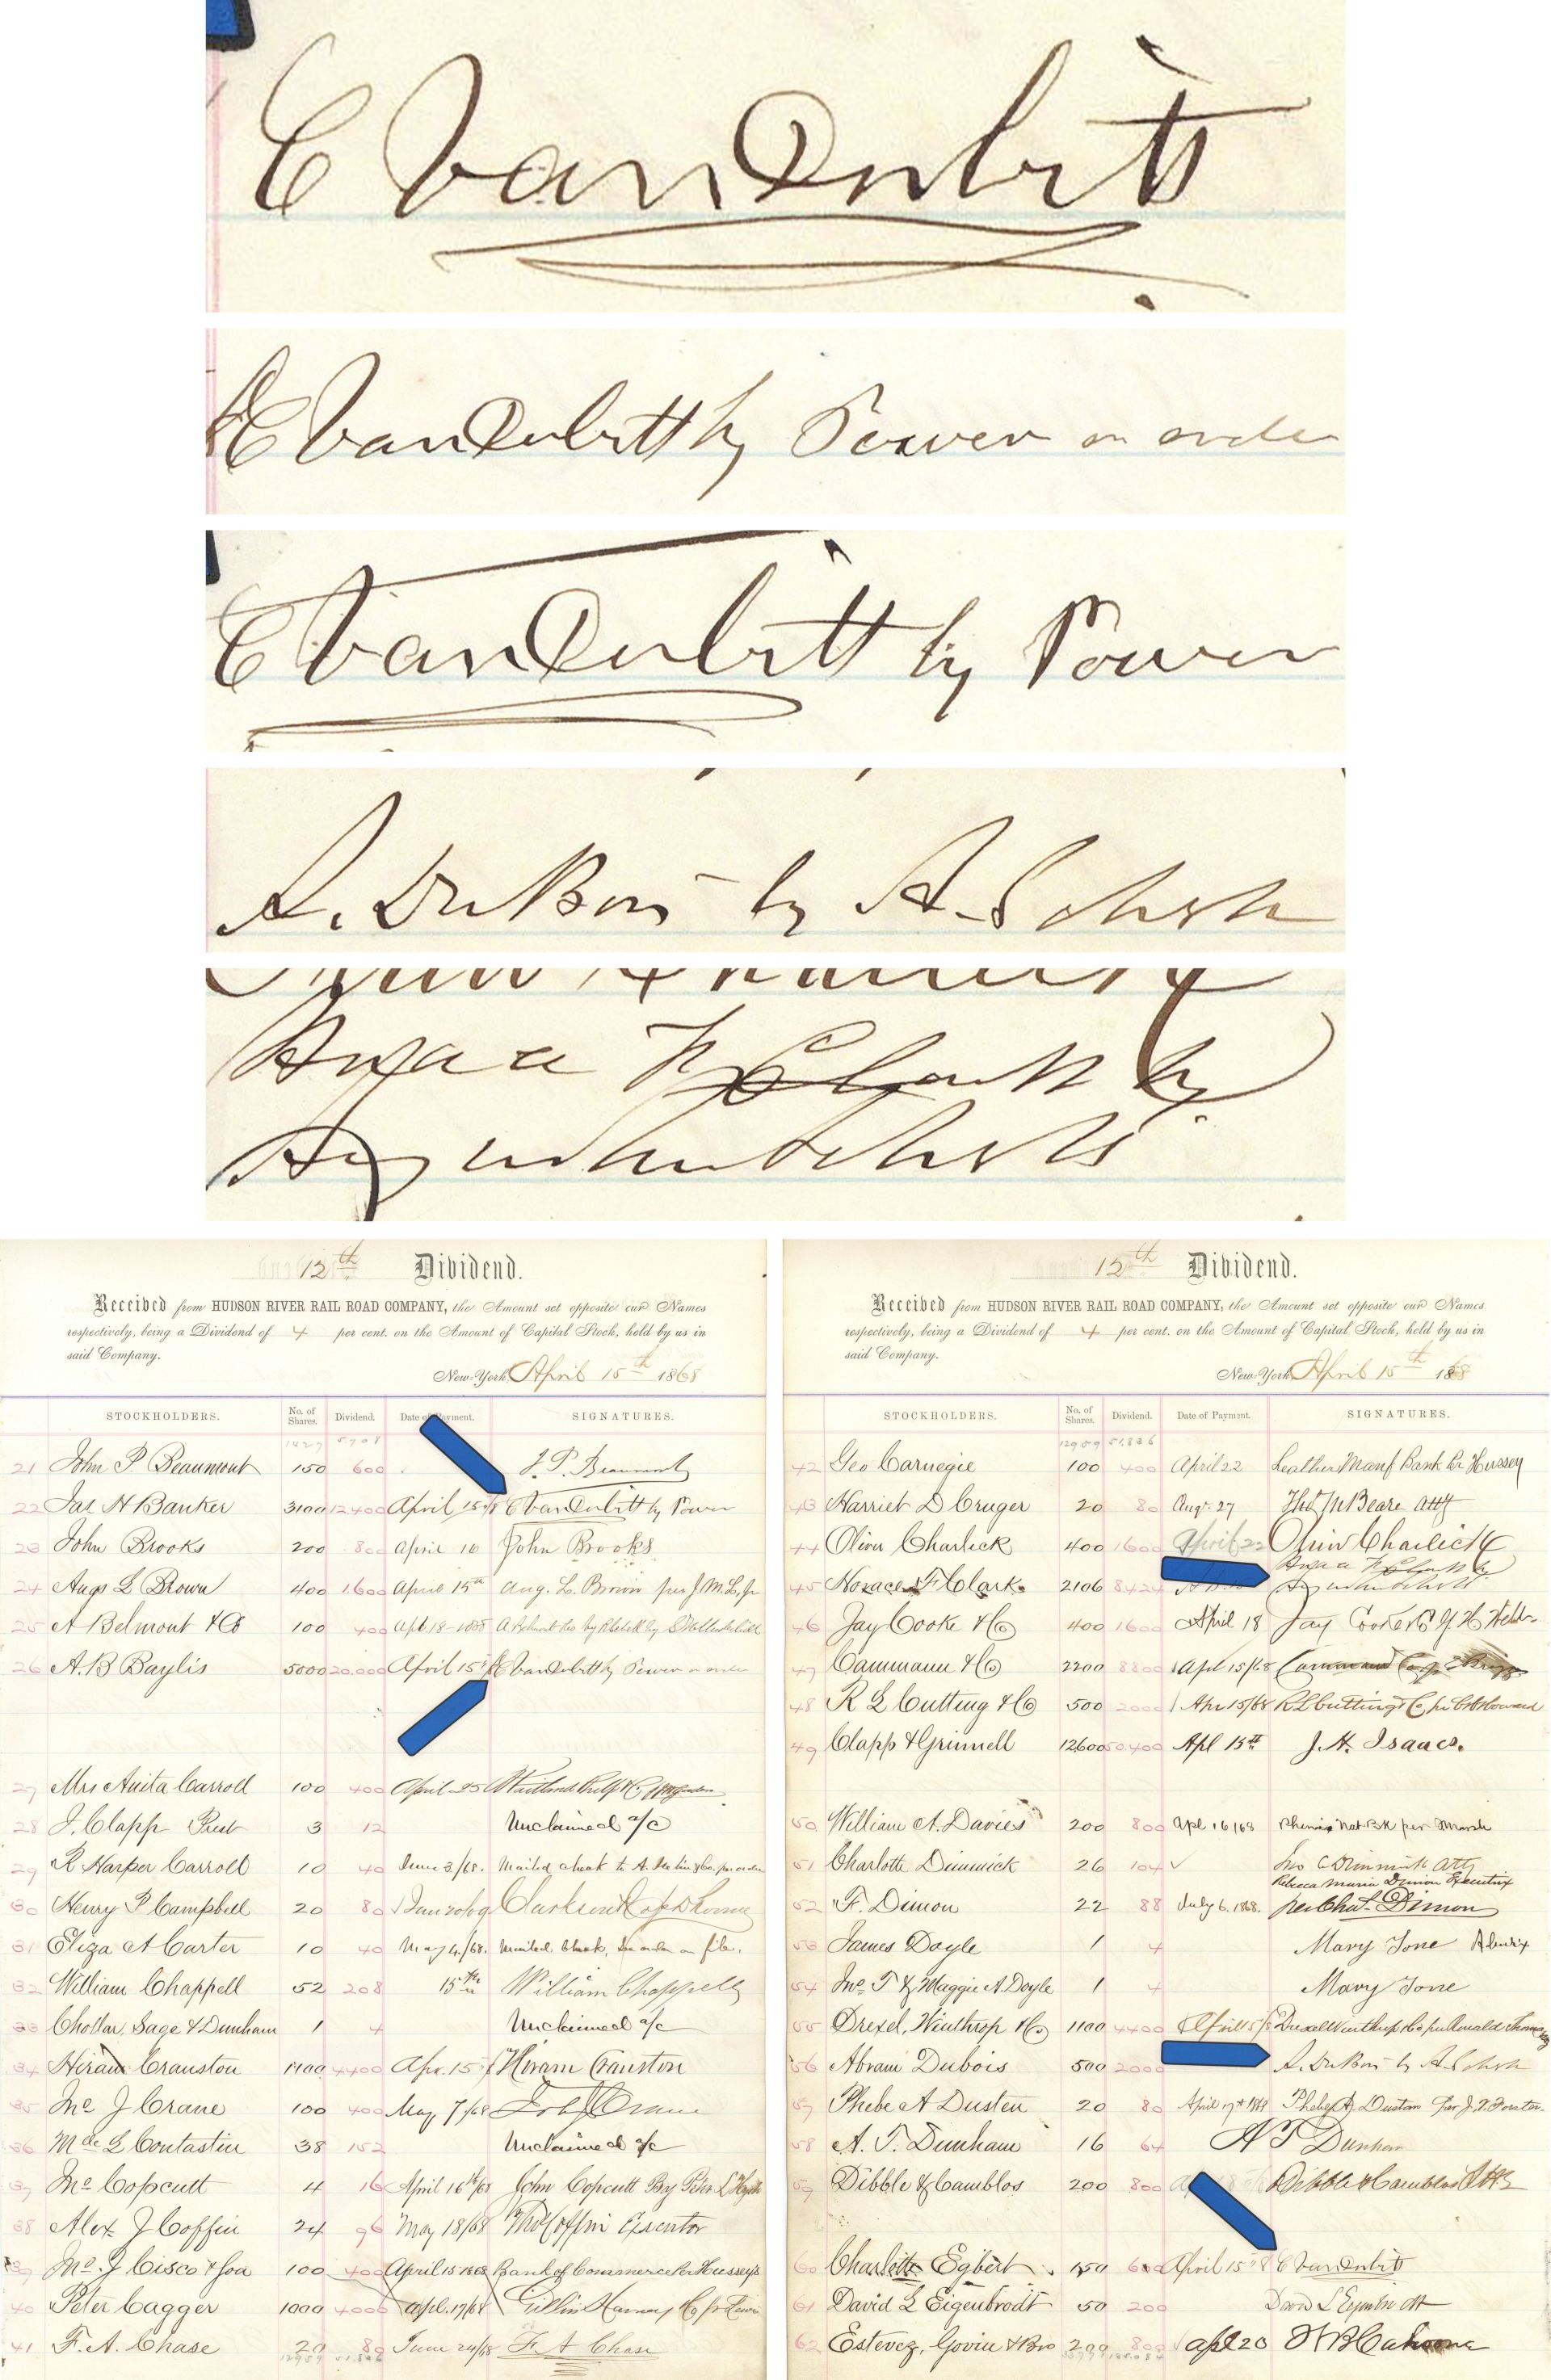 C VanDerbilt
C VanDerbilt by Power on order
C VanDerbilt by Power
A. DuBois by A. Schell
Horace F Clark by
Augustus Schell
12th Dividend.
Received from HUDSON RIVER RAIL ROAD COMPANY, the Amount set opposite our Names
respectively, being a Dividend of 4 per cent. on the Amount of Capital Stock, held by us in
said Company.
New-York, April 15th 1868
STOCKHOLDERS. No. of Shares. Dividend. Date of Payment. SIGNATURES.
21 John P Beaumont 150 600 J. P. Beaumont
22 Jas H Banker 3100 12400 April 15 C VanDerbilt by Power
23 John Brooks 200 800 April 16 John Brooks
24 Augs L Brown 400 1600 April 15th Aug. L. Brown per J. M. L. Jr
25 A Belmont & Co 100 400 Apl 18
26 A. B Baylis 5000 20.000 April 15 C VanDerbilt by Power on order
27 Mrs Anita Carroll 100 400 April 25
28 J. Clapp Prest 3 12 Unclaimed a/c
29 R Harper Carroll 10 40 June 3/68. Mailed check to
30 Henry P Campbell 20 80 Clarkson & Co
31 Eliza A Carter 10 40 May 4/68. Mailed Check, See order on file.
32 William Chappell 52 208 15th William Chappell
33 Chollar, Sage & Dunham 1 4 Unclaimed a/c
34 Hiram Cranston 1100 4400 Apr. 15 Hiram Cranston
35 Jno J Crane 100 400 May 7/68 John J Crane
36 Mde L Contastin 38 152 Unclaimed a/c
37 Jno Copcutt 4 16 April 16th/68 John Copcutt By
38 Alex J Coffin 24 96 May 18/68 Coffin Executor
39 Jno. J Cisco & Son 100 400 April 15 1868 Bank of Commerce Per Hussey
40 Peter Cagger 1000 4000 apl. 17/68
41 F. A. Chase 20 80 June 24/68 F. A Chase
12th Dividend.
Received from HUDSON RIVER RAIL ROAD COMPANY, the Amount set opposite our Names
respectively, being a Dividend of 4 per cent. on the Amount of Capital Stock, held by us in
said Company.
New-York, April 15th 1868
STOCKHOLDERS. No. of Shares. Dividend. Date of Payment. SIGNATURES.
12959 51,836
42 Geo Carnegie 100 400 April 22 Leather Manf Bank Pr Hussey
43 Harriet D Cruger 20 80 Aug. 27 Thos M Beare atty
44 Oliver Charlick 400 1600 April 22 Oliver Charlick
45 Horace F Clark 2106 8424 Horace F Clark by
Augustus Schell
46 Jay Cooke & Co 400 1600 April 18 Jay Cooke & Co
47 Cammann & Co 2200 8800 Apl 15/68 Cammann & Co
48 R L Cutting & Co 500 2000 Apr 15/68 R L Cutting & Co
49 Clapp & Grinnell 12600 50.400 Apl 15th J. H. Isaacs.
50 William A. Davies 200 800 Apl 16/68 Phenix Nat Bk per Marsh
51 Charlotte Dimmick 26 104 Jno C Dimmick Atty
Rebecca Maria Dimon Executrix
52 F. Dimon 22 88 July 6. 1868. per Chas. Dimon
53 James Doyle 1 4 Mary Tone
54 Jno. T & Maggie A. Doyle 1 4 Mary Tone
55 Drexel, Winthrop & Co 1100 4400 April 15 Drexel Winthrop & Co
56 Abram Dubois 500 2000 A. DuBois by A. Schell
57 Phebe A Dusten 20 80 April 17th 1868 Phebe A Dusten
58 A. T. Dunham 16 64 A T Dunham
59 Dibble & Camblos 200 800 Dibble & Camblos
60 Charlotte Egbert 150 600 April 15 C VanDerbilt
61 David L Eigenbrodt 50 200 David L Eigenbrodt
62 Estevez, Govin & Bro 200 800 apl 20